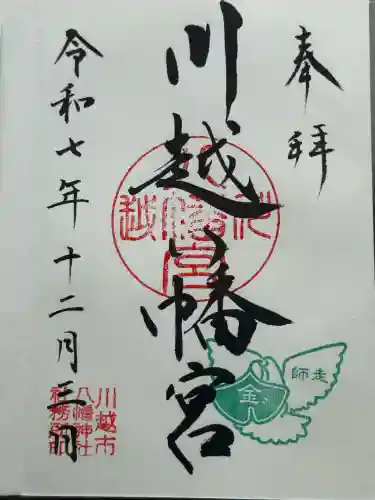 奉拝
川越八幡宮
令和七年十二月三日
師走
金
川越市
八幡神社
社務所